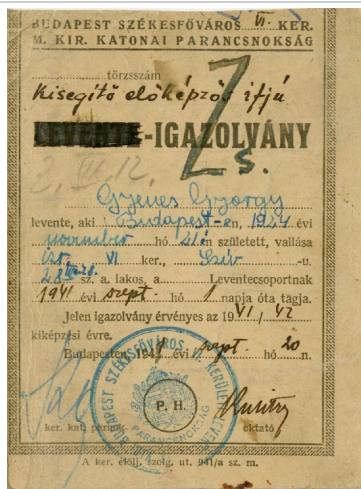 BUDAPEST SZÉKESFŐVÁROS VI. KER.
M. KIR. KATONAI PARANCSNOKSÁG
törzsszám
Kisegítő előképzős ifjú
LEVENTE-IGAZOLVÁNY
Zs.
Gyenes György
levente, aki Budapest-en, 1924 évi
november hó 21én született, vallása
izr. VI ker., Szív -u.
28 sz. a. lakos, a Leventecsoportnak
1941 évi szept. hó 1 napja óta tagja.
Jelen igazolvány érvényes az 1941/42
kiképzési évre.
Budapesten, 1941 évi szept. hó 20 n.
P. H.
PARANCSNOKSÁG
ker. kat. parank.
oktató
A ker. elölj. szolg. ut. 941/a sz. m.